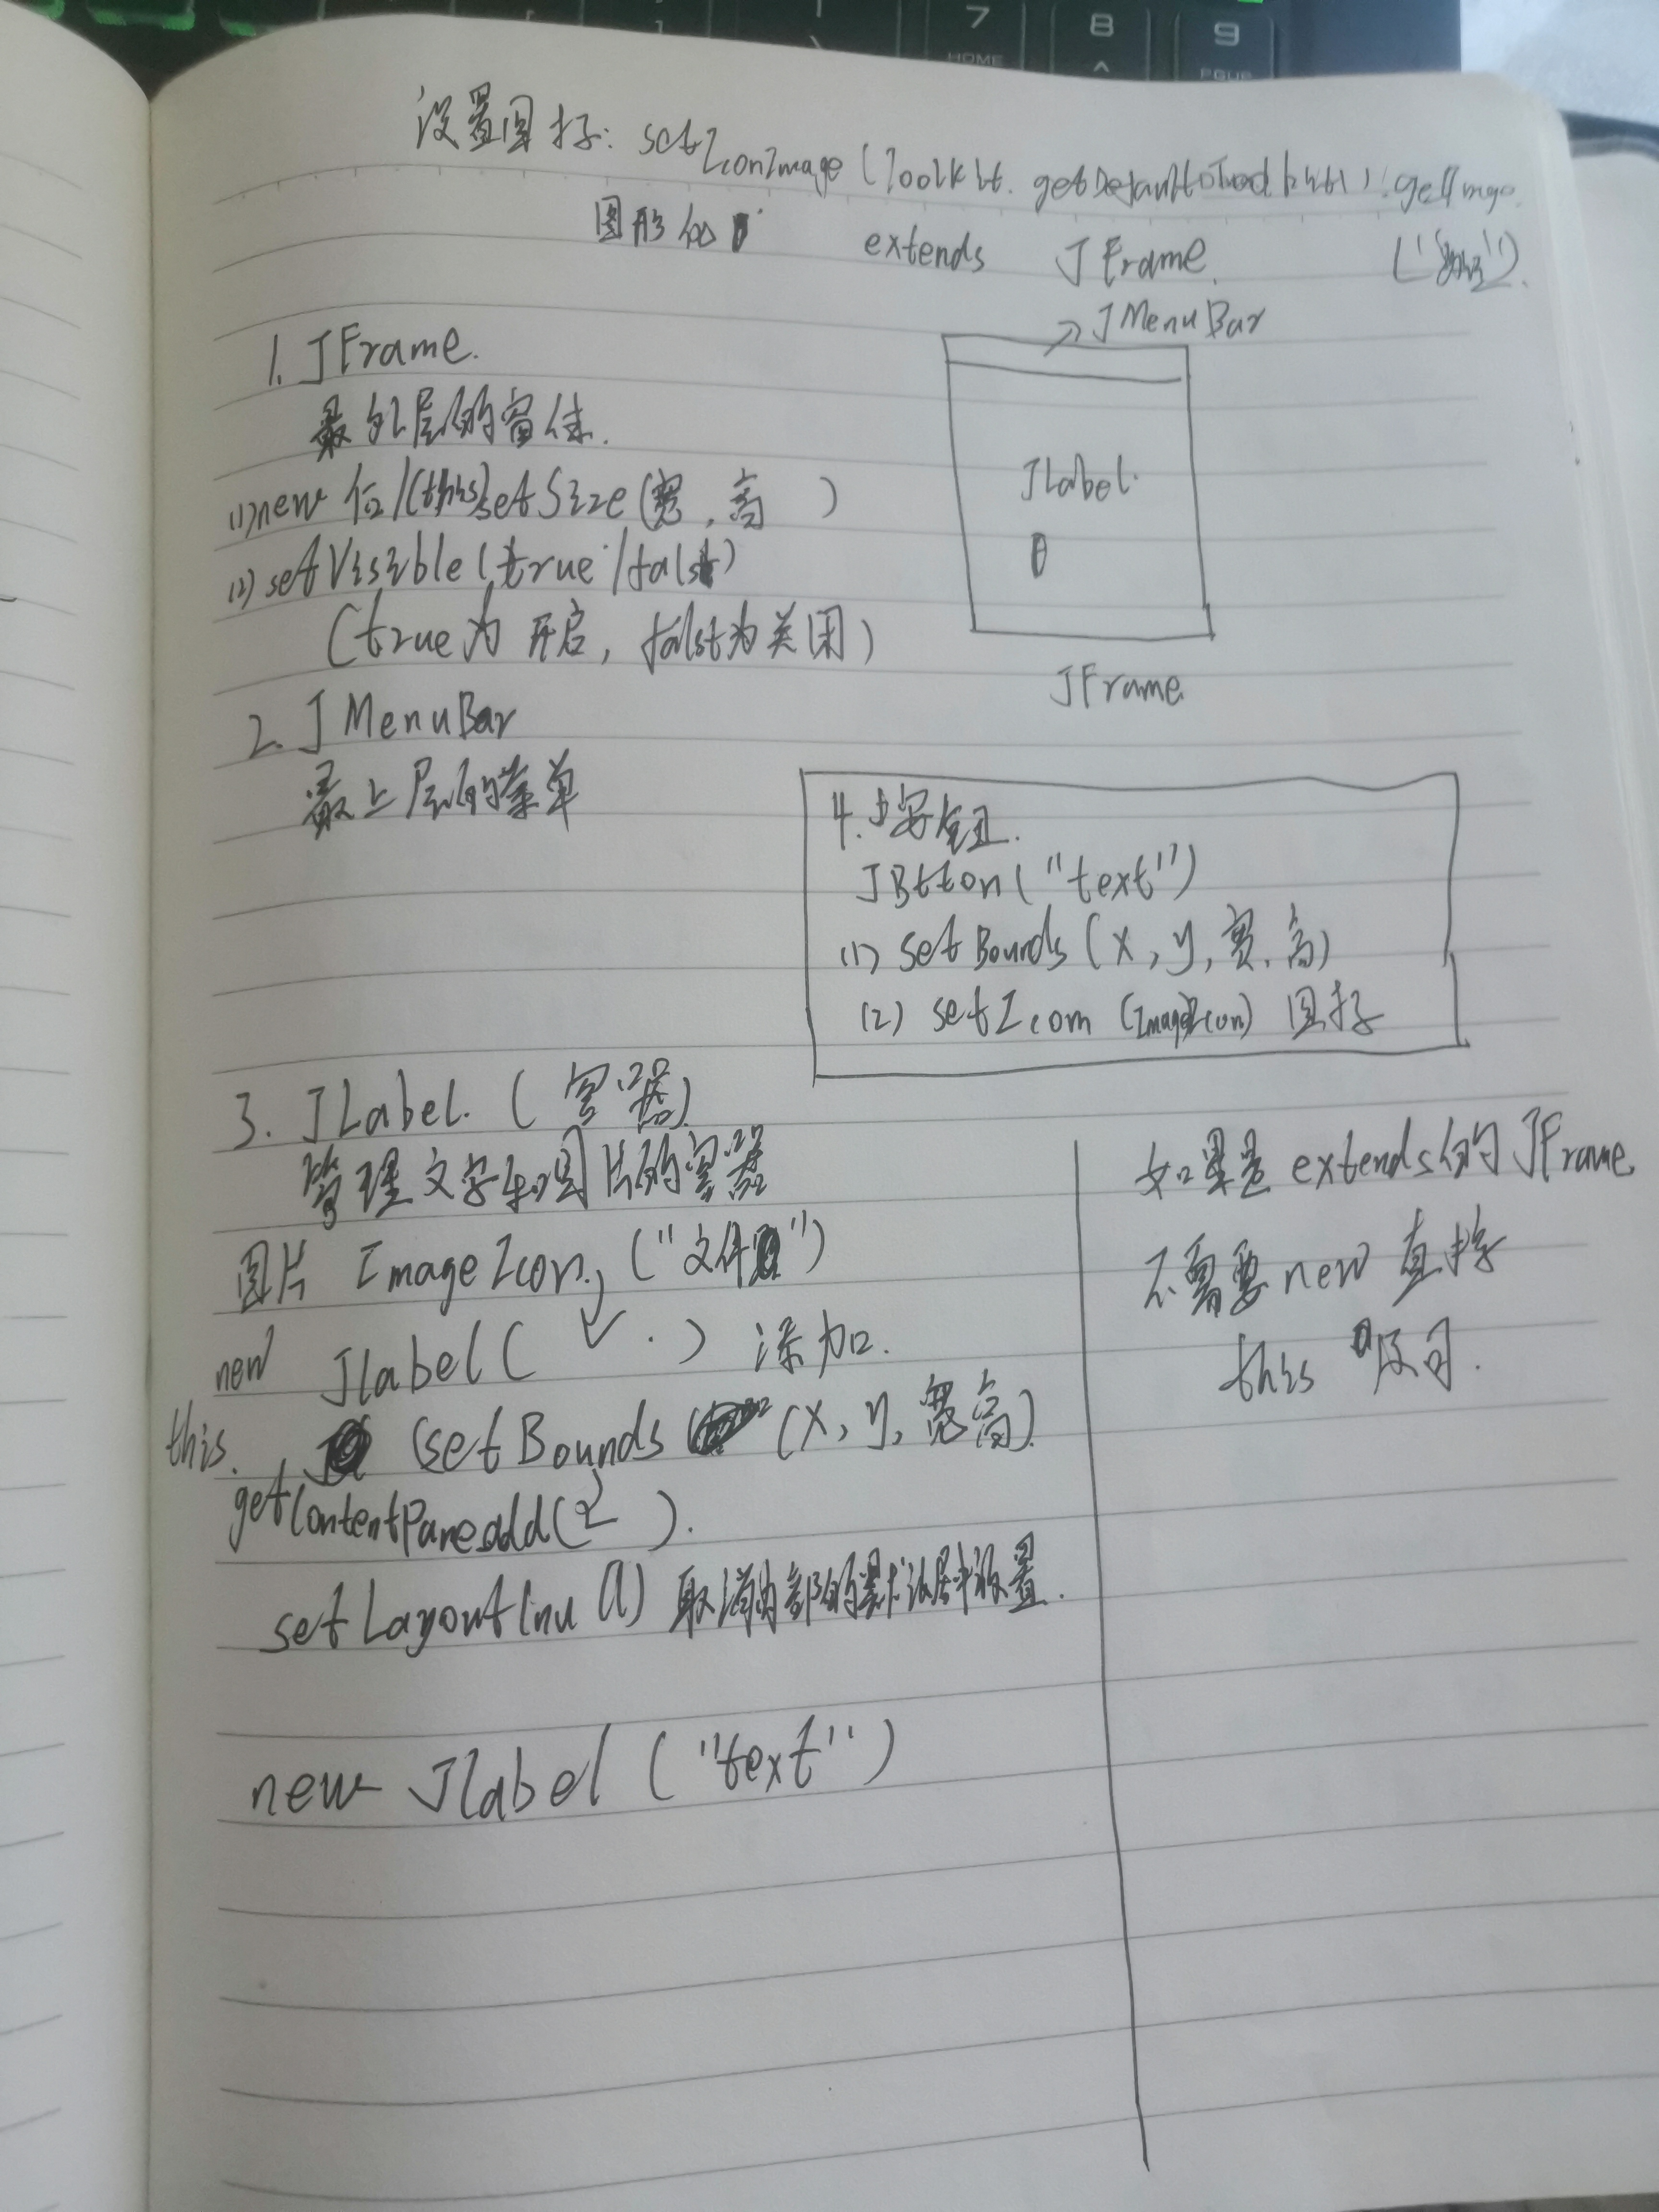 设置图标: setIconImage(Toolkit.getDefaultToolkit().getImage
("路径").
图形化 extends JFrame.
1. JFrame.
最外层的窗体.
(1) new 后/(this)setSize(宽, 高 )
(2) setVisible(true/false)
(true为开启, false为关闭)
JMenuBar
JLabel.
JFrame
2. JMenuBar
最上层的菜单
4. 按钮.
JBtton("text")
(1) setBounds(x, y, 宽, 高)
(2) setIcom (ImageIcon) 图标
3. JLabel. (容器)
管理文字和图片的容器
图片 ImageIcon, ("文件")
new Jlabel( ) 添加.
this. (setBounds (x, y, 宽高)
getContentPane.add( ).
setLayout(null) 取消内部的默认居中设置.
new Jlabel ("text")
如果是 extends的JFrame
不需要new 直接
this 即可.